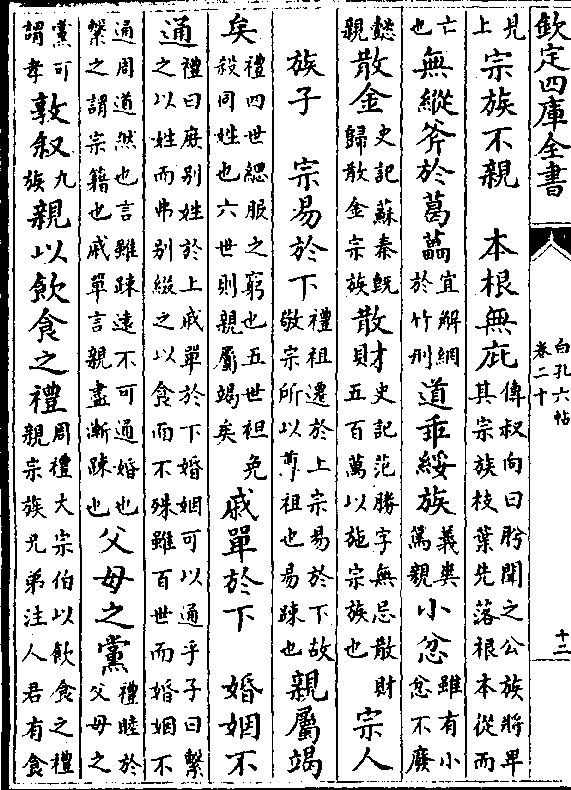 欽定四庫全書
白孔六帖
卷二十
十二
見上 宗族不親 本根無庇 傳叔向曰肸聞之公族將卑其宗族枝葉先落根本從而
亡也 無縱斧於葛藟 宜解網於竹刑 道乖綏族 義爽篤親 小忿 雖有小忿不廢
懿親 散金 史記蘇秦既歸散金宗族 散財 史記范勝字無忌散財五百萬以施宗族也 宗人
族子 宗易於下 禮祖遷於上宗易於下故敬宗所以尊祖也易踈也 親屬竭
矣 禮四世緦服之窮也五世袒免殺同姓也六世則親屬竭矣 戚單於下 婚姻不
通 禮曰庶别姓於上戚單於下婚姻可以通乎子曰繫之以姓而弗别綴之以食而不殊雖百世而婚姻不
通周道然也言雖踈遠不可通婚也繫之謂宗籍也戚單言親盡漸踈也 父母之黨 禮睦於父母之
黨可謂孝 敦叙 九族 親以飲食之禮 周禮大宗伯以飲食之禮親宗族兄弟注人君有食